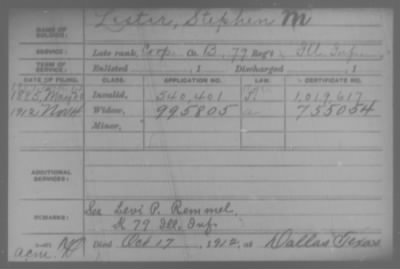 NAME OF SOLDIER: Lister, Stephen M
SERVICE: Late rank, Corp. Co. B, 79 Reg't Ill. Inf.
TERM OF SERVICE: Enlisted , 1 Discharged , 1
DATE OF FILING. CLASS. APPLICATION NO. CERTIFICATE NO.
1885, May Invalid, 540,401 1,019,617
1912 Nov 4 Widow, 995805 755054
Minor,
ADDITIONAL SERVICES:
REMARKS: See Levi P. Remmel,
K 79 Ill. Inf.
Died Oct 17, 1912, at Dallas Texas